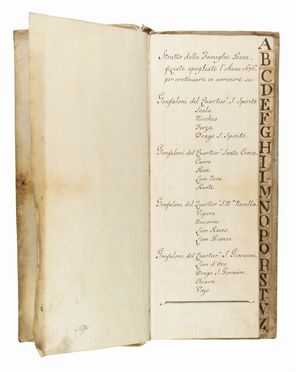 Stratto delle Famiglie Bene,
fiziate spogliate l'Anno 1696.
per continuare in avvenire &c.
Gonfaloni del Quartier S. Spirito.
Scala.
Nicchio.
Ferze.
Drago S. Spirito.
Gonfaloni del Quartier Santa Croce.
Carro
Bue.
Lion Nero.
Ruote.
Gonfaloni del Quartier S. Mª Novella.
Vipera.
Unicorno.
Lion Rosso.
Lion Bianco.
Gonfaloni del Quartier S. Giovanni.
Lion d'Oro.
Drago S. Giovanni.
Chiave.
Vajo.
A
B
C
D
E
F
G
H
I
L
M
N
O
P
Q
R
S
T
V
Z